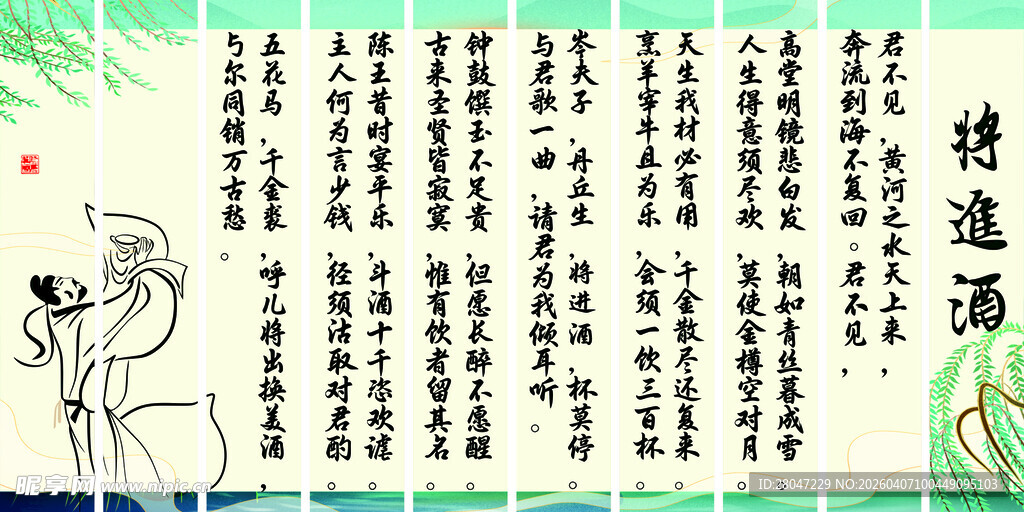 将進酒
君不见,黄河之水天上来,
奔流到海不复回。君不见,
高堂明镜悲白发,朝如青丝暮成雪。
人生得意须尽欢,莫使金樽空对月。
天生我材必有用,千金散尽还复来。
烹羊宰牛且为乐,会须一饮三百杯。
岑夫子,丹丘生,将进酒,杯莫停。
与君歌一曲,请君为我倾耳听。
钟鼓馔玉不足贵,但愿长醉不愿醒。
古来圣贤皆寂寞,惟有饮者留其名。
陈王昔时宴平乐,斗酒十千恣欢谑。
主人何为言少钱,径须沽取对君酌。
五花马,千金裘,呼儿将出换美酒,
与尔同销万古愁。
昵享网 www.nipic.cn
ID:28047229 NO:20260407100449095103